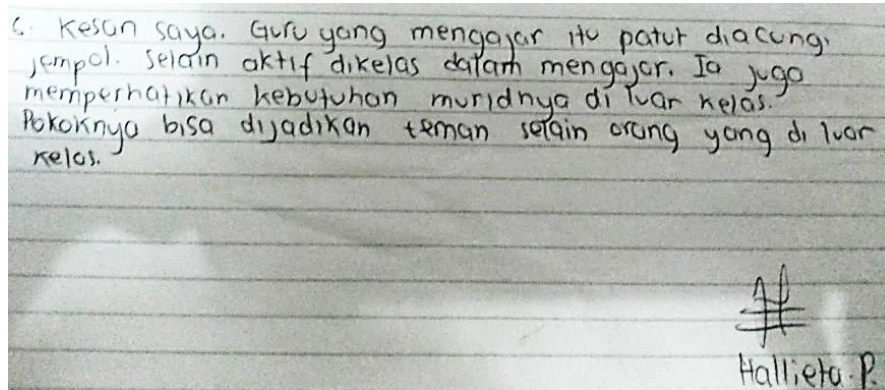 6. Kesan saya. Guru yang mengajar itu patut diacungi
jempol. Selain aktif dikelas dalam mengajar. Ia juga
memperhatikan kebutuhan muridnya di luar kelas.
Pokoknya bisa dijadikan teman selain orang yang di luar
kelas.
Hallieta. P.